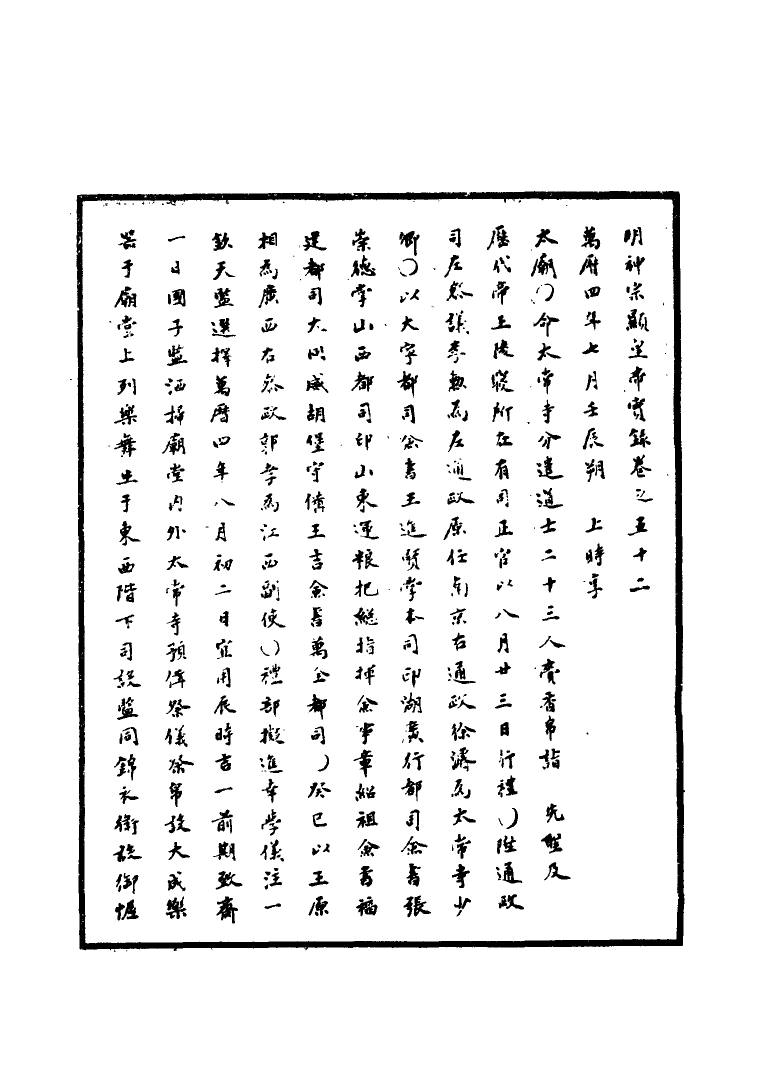 明神宗顯皇帝實錄卷之五十二
萬曆四年七月壬辰朔　上時享
太廟○命太常寺分遣道士二十三人賫香帛詣　先聖及
歷代帝王陵寢所在有司正官以八月廿三日行禮○陞通政
司左叅議李敕為左通政原任南京右通政徐濬為太常寺少
卿○以大寧都司僉書王進賢掌本司印湖廣行都司僉書張
崇德掌山西都司印山東運粮把総指揮僉事韋紹祖僉書福
建都司大同威胡堡守備王吉僉書萬全都司○癸巳以王原
相為廣西右叅政郭孝為江西副使○禮部擬進幸學儀注一
欽天監選擇萬曆四年八月初二日宜用辰時吉一前期致齋
一日國子監洒掃廟堂內外太常寺預俻祭儀祭帛設大成樂
器于廟堂上列樂舞生于東西階下司設監同錦衣衛設御幄